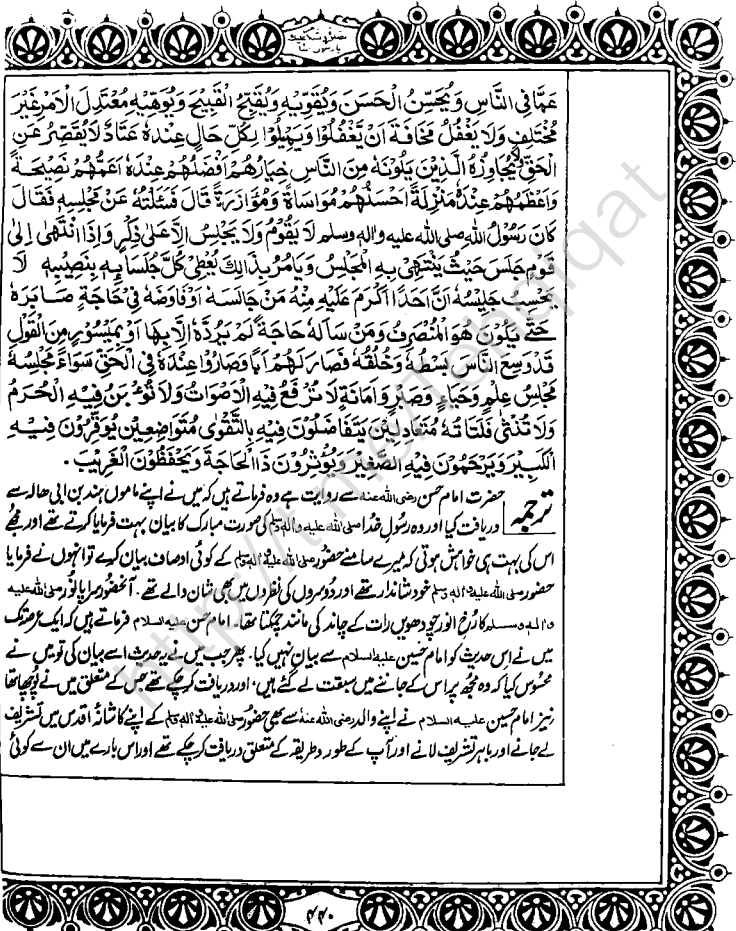 عَمَّا فِي النَّاسِ وَيُحَسِّنُ الْحَسَنَ وَيُقَوِّيهِ وَيُقَبِّحُ الْقَبِيحَ وَيُوَهِّيهِ مُعْتَدِلَ الْاَمْرِ غَيْرَ
مُخْتَلِفٍ وَلَا يَغْفُلُ مَخَافَةَ اَنْ يَّغْفُلُوْا وَيَمِيْلُوْا لِكُلِّ حَالٍ عِنْدَهٗ عَتَادٌ لَا يُقَصِّرُ عَنِ
الْحَقِّ وَلَا يُجَاوِزُهُ الَّذِيْنَ يَلُوْنَهٗ مِنَ النَّاسِ خِيَارُهُمْ اَفْضَلُهُمْ عِنْدَهٗ اَعَمُّهُمْ نَصِيْحَةً
وَاَعْظَمُهُمْ عِنْدَهٗ مَنْزِلَةً اَحْسَنُهُمْ مُوَاسَاةً وَمُؤَازَرَةً قَالَ فَسَئَلْتُهٗ عَنْ مَجْلِسِهٖ فَقَالَ
كَانَ رَسُوْلُ اللهِ صلى الله عليه واله وسلم لَا يَقُوْمُ وَلَا يَجْلِسُ اِلَّا عَلٰى ذِكْرٍ وَاِذَا انْتَهٰى اِلٰى
قَوْمٍ جَلَسَ حَيْثُ يَنْتَهِيْ بِهِ الْمَجْلِسُ وَيَاْمُرُ بِذَالِكَ يُعْطِيْ كُلَّ جُلَسَآئِهٖ بِنَصِيْبِهٖ لَا
يَحْسَبُ جَلِيْسُهٗ اَنَّ اَحَدًا اَكْرَمُ عَلَيْهِ مِنْهُ مَنْ جَالَسَهٗ اَوْ فَاوَضَهٗ فِيْ حَاجَةٍ صَابَرَهٗ
حَتّٰى يَكُوْنَ هُوَ الْمُنْصَرِفُ وَمَنْ سَاَلَهٗ حَاجَةً لَمْ يَرُدَّهٗ اِلَّا بِهَا اَوْ بِمَيْسُوْرٍ مِنَ الْقَوْلِ
قَدْ وَسِعَ النَّاسَ بَسْطُهٗ وَخُلُقُهٗ فَصَارَ لَهُمْ اَبًا وَصَارُوْا عِنْدَهٗ فِي الْحَقِّ سَوَاءً مَجْلِسُهٗ
مَجْلِسُ عِلْمٍ وَحَيَاءٍ وَصَبْرٍ وَاَمَانَةٍ لَا تُرْفَعُ فِيْهِ الْاَصْوَاتُ وَلَا تُؤْبَنُ فِيْهِ الْحُرَمُ
وَلَا تُنْثٰى فَلَتَاتُهٗ مُتَعَادِلِيْنَ يَتَفَاضَلُوْنَ فِيْهِ بِالتَّقْوٰى مُتَوَاضِعِيْنَ يُوَقِّرُوْنَ فِيْهِ
الْكَبِيْرَ وَيَرْحَمُوْنَ فِيْهِ الصَّغِيْرَ وَيُؤْثِرُوْنَ ذَا الْحَاجَةِ وَيَحْفَظُوْنَ الْغَرِيْبَ ۔
ترجمہ حضرت امام حسن رضی اللہ عنہ سے روایت ہے وہ فرماتے ہیں کہ میں نے اپنے ماموں ہند بن ابی ھالہ سے
دریافت کیا اور وہ رسول خدا صلی اللہ علیہ والہ وسلم کی صورت مبارک کا بیان بہت فرمایا کرتے تھے اور مجھے
اس کی بہت ہی خواہش ہوتی کہ میرے سامنے حضور صلی اللہ علیہ والہ وسلم کے کوئی اوصاف بیان کرے تو انہوں نے فرمایا
حضور صلی اللہ علیہ والہ وسلم خود شاندار تھے اور دوسروں کی نظروں میں بھی شان والے تھے۔ آنحضور سراپا نور صلی اللہ علیہ
والہ وسلم کا رخ انور چودھویں رات کے چاند کی مانند چمکتا تھا۔ امام حسن علیہ السلام فرماتے ہیں کہ ایک عرصہ تک
میں نے اس حدیث کو امام حسین علیہ السلام سے بیان نہیں کیا۔ پھر جب میں نے یہ حدیث اسے بیان کی تو میں نے
محسوس کیا کہ وہ مجھ پر اس کے جاننے میں سبقت لے گئے ہیں، اور دریافت کر چکے تھے جس کے متعلق میں نے پوچھا تھا
نیز امام حسین علیہ السلام نے اپنے والد رضی اللہ عنہ سے بھی حضور صلی اللہ علیہ والہ وسلم کے اپنے کاشانہ اقدس میں تشریف
لے جانے اور باہر تشریف لانے اور آپ کے طور و طریقہ کے متعلق دریافت کر چکے تھے اور اس بارے میں ان سے کوئی
۴۴۰
http://t.me/Tehqiqat